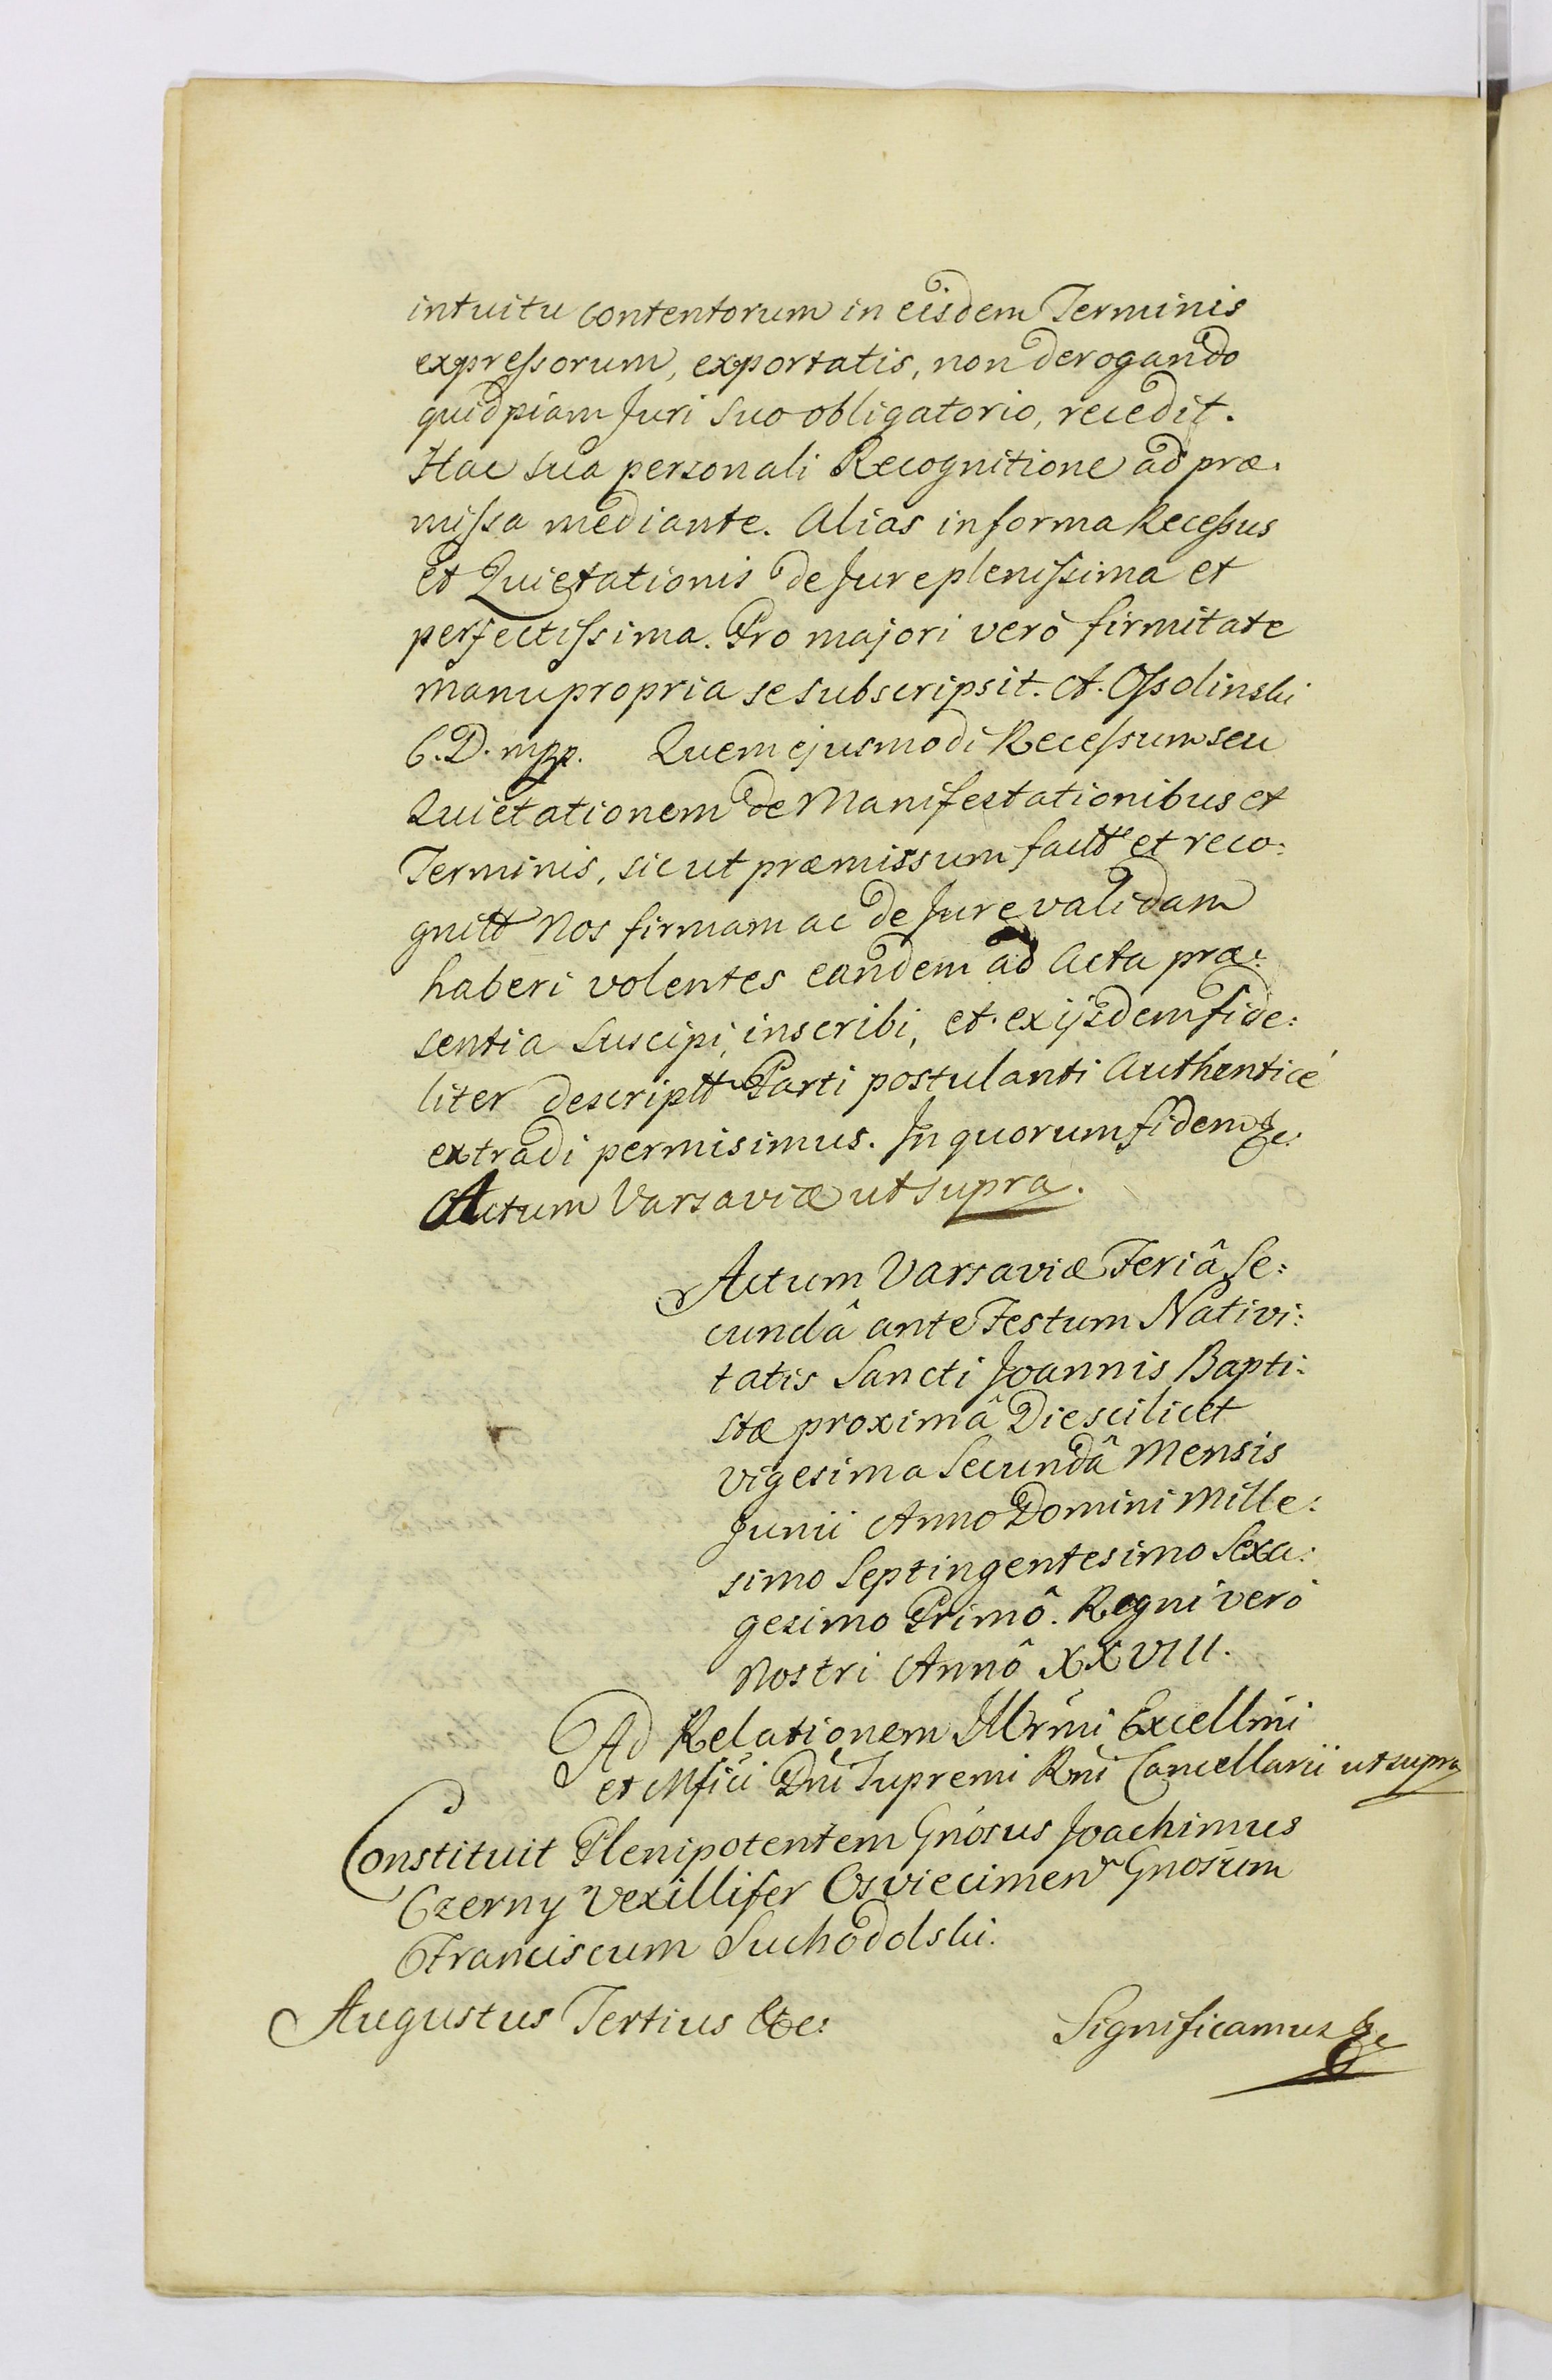 intuitu contentorum in eisdem Terminis
expressorum, exportatis, non derogando
quidpiam Juri suo obligatorio, recedit.
Hac sua personali Recognitione ad præ:
missa mediante. Alias in forma Recessus
et Quietationis de Jure plenissima et
perfectissima. Pro majori verò firmitate
manu propria se subscripsit. A. Ossolinski
C. D. mpp. Quem ejusmodi Recessum seu
Quietationem de Manifestationibus et
Terminis, sic ut præmissum factt et reco:
gnitt Nos firmam ac de Jure validam
haberi volentes eandem ad Acta præ:
sentia suscipi, inscribi, et ex ijsdem fide:
liter descriptt Parti postulanti Authenticè
extradi permisimus. In quorum fidem &c.
Actum Varsaviæ ut supra.
Actum Varsaviæ Feriâ Se:
cundâ ante Festum Nativi:
tatis Sancti Joannis Bapti:
stæ proximâ Die scilicet
vigesima Secundâ Mensis
Junii Anno Domini Mille:
simo Septingentesimo Sexa:
gesimo Primô. Regni verò
Nostri Annô XXVIII.
Ad Relationem Illrmi Excellmi
et Mfici Dni Supremi Rni Cancellarii ut supra
Constituit Plenipotentem Gnosus Joachimus
Czerny Vexillifer Osviecimen Gnosum
Franciscum Suchodolski.
Augustus Tertius &c: Significamus &c